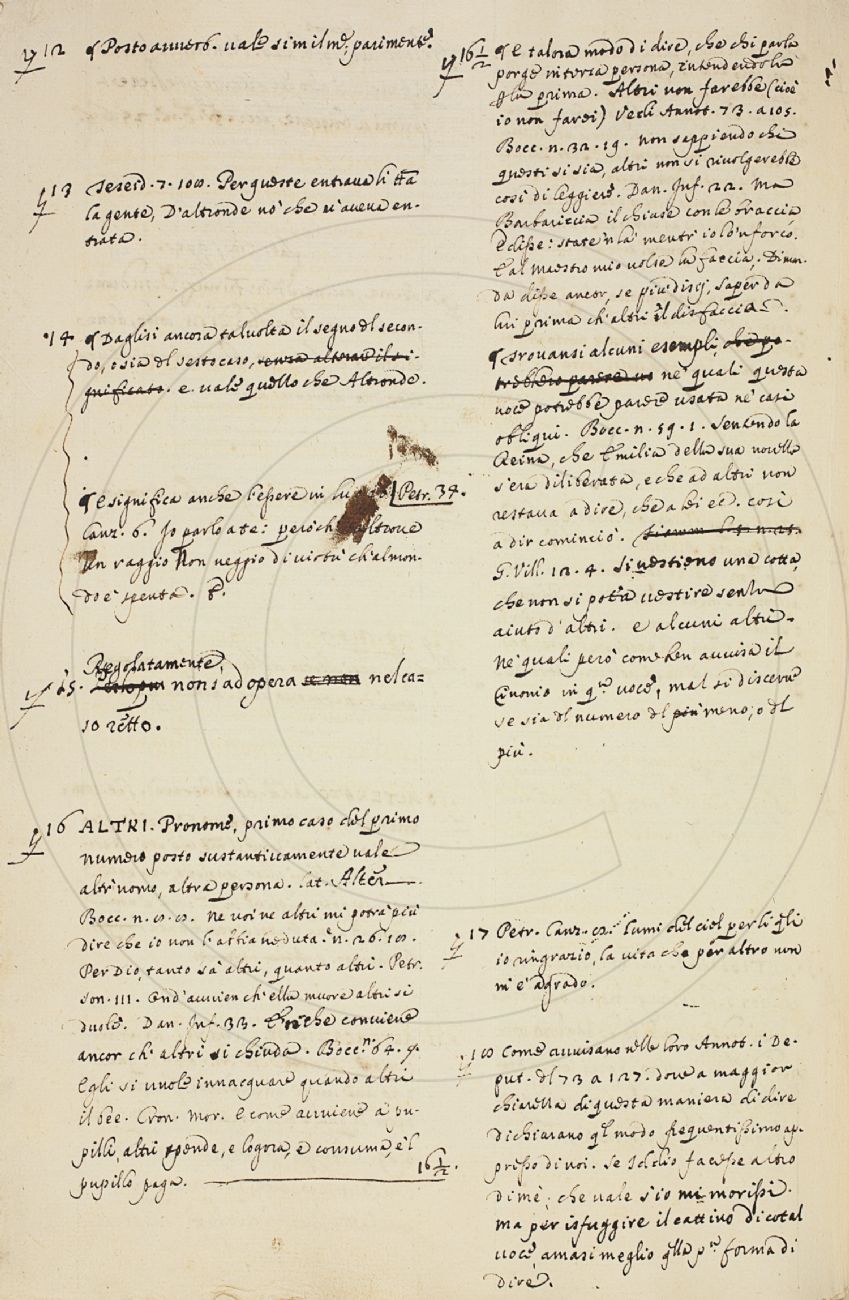 12 ¶ Posto avverb. vale similme, parimente.
13 Teseid. 7. 108. Per queste entrava lì tta
la gente, D'altronde no' che v'aveva en-
trata.
14 ¶ Daglisi ancora talvolta il segno dl secon-
do, o sia dl sesto caso, senza alterare il si-
gnificato. e vale quello che Altronde.
¶ E significa anche l'essere in Petr. 34.
Canz. 6. Io parlo a te: però ch' altrove
Un raggio Non veggio di virtù ch' al mon-
do è spenta. E.
Regolatamente,
15. non s'adopera se non nel ca=
so retto.
16 ALTRI. Pronome, primo caso del primo
numero posto sustantivamente vale
altr'uomo, altra persona. lat. Alter.
Bocc. n. 8. 8. Ne voi ne altri mi potrà più
dire che io non l'abbia veduta. n. 26. 18.
Per Dio, tanto sa altri, quanto altri. Petr.
son. 111. Ond' avvien ch' ella muore altri si
duole. Dan. Inf. 33. che conviene
ancor ch' altri si chiuda. Bocc. n. 64. 4.
Egli si vuole innacquare quando altri
il bee. Cron. Mor. E come avviene a' pu-
pilli, altri spende, e logora, e consuma, e 'l
pupillo paga. 16 1/2.
16 1/2 ¶ E talora modo di dire, che chi parla
porge in terza persona, intendendo la
pla prima. Altri non farebbe (cioè
io non farei) Vedi Annot. 73. a 105.
Bocc. n. 32. 19. Non sappiendo chi
questi si sia, altri non si rivolgerebbe
così di leggiere. Dan. Inf. 22. Ma
Barbariccia il chiuse con le braccia
E disse: state 'n là mentr' io lo 'nforco.
E al maestro mio volse la faccia, Diman-
da disse ancor, se più disij, saper da
lui prima ch' altri il disfaccia.
¶ Trovansi alcuni esempli, che po-
trebbero parere ne' quali questa
voce potrebbe parere usata ne' casi
obliqui. Bocc. n. 59. 1. Sentendo la
Reina, che Emilia della sua novella
s'era diliberata, e che ad altri non
restava a dire, che a lei ec. così
a dir cominciò.
G. Vill. 12. 4. Si vestieno una cotta,
che non si potea vestire senza
aiuto d'altri. e alcuni altri=
Ne' quali però come ben avvisa il
Cinonio in qta voce, mal si discerne
se sia dl numero dl più meno; o dl
più.
17 Petr. Canz. I' lumi del ciel per li qli
io ringrazio, la vita che per altro non
m'è a grado.
18 Come avvisano nelle loro Annot. i De-
put. dl 73 a 127. dove a maggior
chiarella di questa maniera di dire
dichiarano ql modo frequentissimo ap-
presso di noi. Se Iddio facesse altro
di me; che vale s'io mi morissi.
ma per isfuggire il cattivo di cotal
voce, amasi meglio qlla pa forma di
dire.